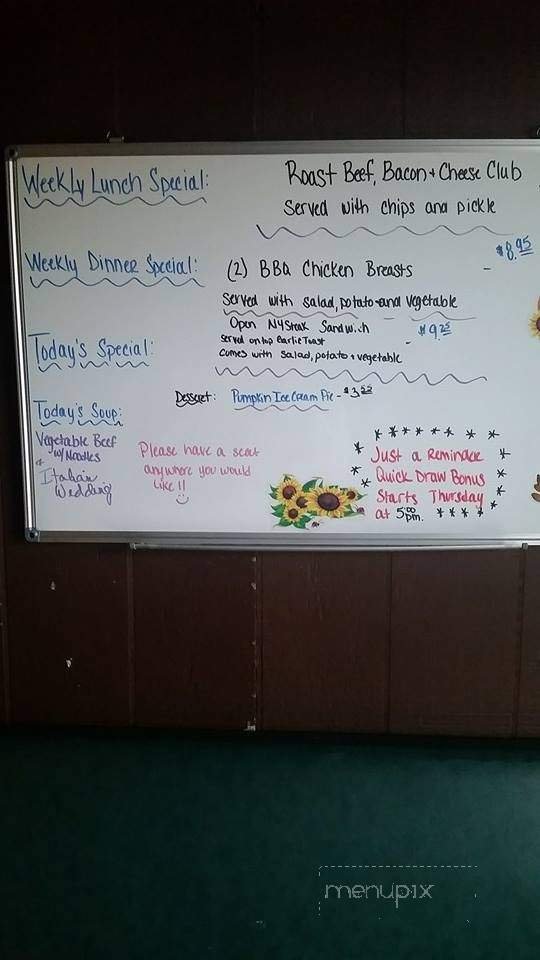 Weekly Lunch Special: Roast Beef, Bacon + Cheese Club
Served with chips and pickle
$8.95
Weekly Dinner Special: (2) BBQ Chicken Breasts -
Served with salad, potato and vegetable
Today's Special: Open NY Steak Sandwich - $9.25
Served on top Garlic Toast
Comes with salad, potato + vegetable
Dessert: Pumpkin Ice Cream Pie -
Today's Soup:
Vegetable Beef
w/ Noodles
or
Italian
Wedding
Please have a seat
anywhere you would
like!!
Just a Reminder
Quick Draw Bonus
Starts Thursday
at 5:00 pm.
menupix